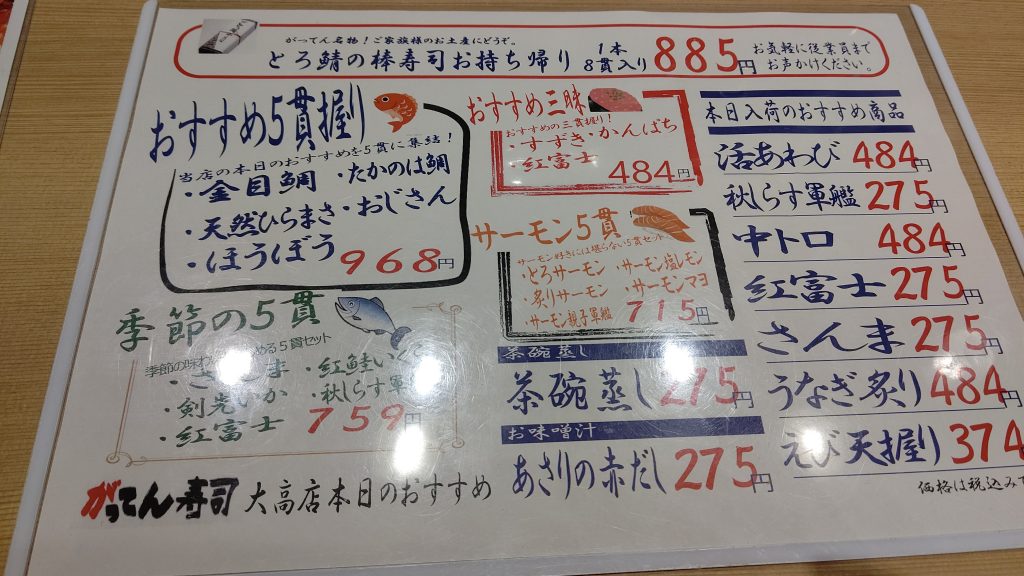 がってん名物！ご家族様のお土産にどうぞ。
とろ鯖の棒寿司お持ち帰り 1本 8貫入り 885円 お気軽に従業員まで お声かけください。
おすすめ5貫握り
当店の本日のおすすめを5貫に集結！
・金目鯛 ・たかのは鯛
・天然ひらまさ ・おじさん
・ほうぼう 968円
季節の5貫
季節の味わ める5貫セット
・さんま ・紅鮭いくら
・剣先いか ・秋しらす軍
・紅富士 759円
おすすめ三昧
おすすめの三貫握り！
・すずき・かんぱち
・紅富士
484円
サーモン5貫
サーモン好きには堪らない5貫セット
・とろサーモン ・サーモン塩レモン
・炙りサーモン ・サーモンマヨ
・サーモン親子軍艦 715円
茶碗蒸し
茶碗蒸し 275円
お味噌汁
あさりの赤だし 275円
本日入荷のおすすめ商品
活あわび 484円
秋しらす軍艦 275円
中トロ 484円
紅富士 275円
さんま 275円
うなぎ炙り 484円
えび天握り 374
価格は税込みで
がってん寿司 大高店本日のおすすめ